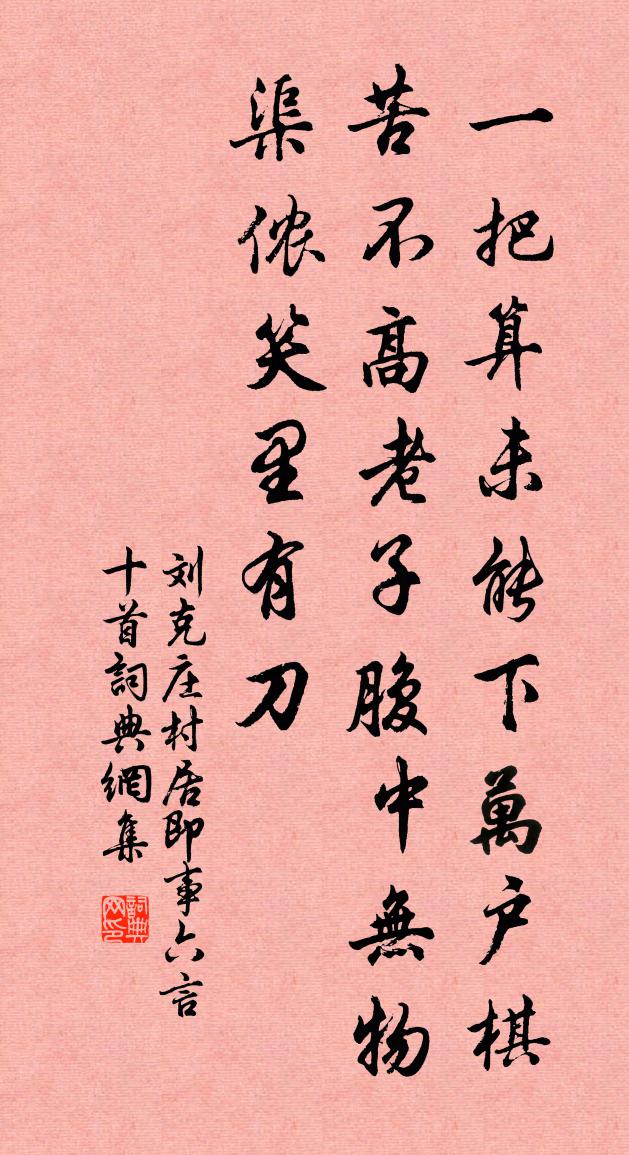 一把算未能下萬户棋
苦不高老子腹中無物
渠侬笑里有刀
刘克庄村居即事六言
十首詞典網集
詞典
网印